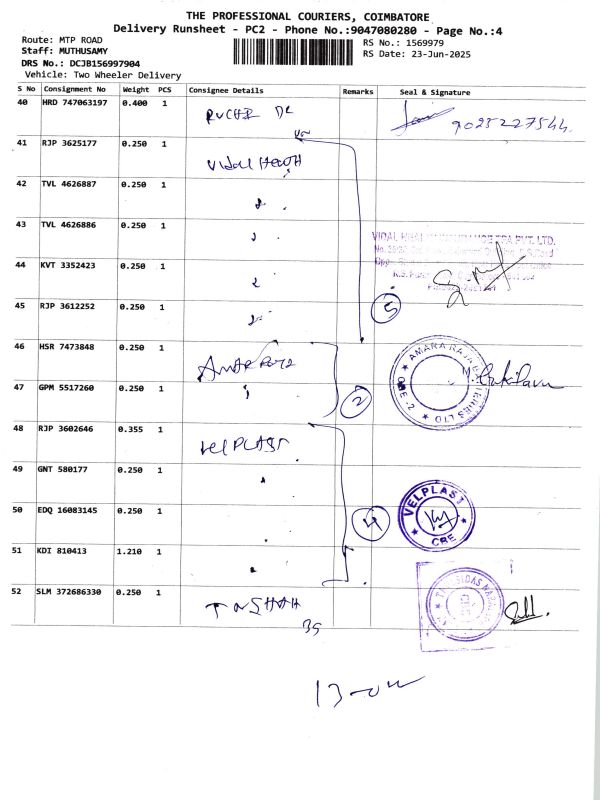 THE PROFESSIONAL COURIERS, COIMBATORE
Delivery Runsheet - PC2 - Phone No.:9047080280 - Page No.:4
Route: MTP ROAD
Staff: MUTHUSAMY
DRS No.: DCJB156997904
Vehicle: Two Wheeler Delivery
RS No.: 1569979
RS Date: 23-Jun-2025
S No Consignment No Weight PCS Consignee Details Remarks Seal & Signature
40 HRD 747063197 0.400 1 9025227544
41 RJP 3625177 0.250 1 Vidal Health
42 TVL 4626887 0.250 1
43 TVL 4626886 0.250 1
VIDAL TPA PVT. LTD.
44 KVT 3352423 0.250 1
45 RJP 3612252 0.250 1 5
46 HSR 7473848 0.250 1 AMARA RAJA LTD CBE-2
47 GPM 5517260 0.250 1 2
48 RJP 3602646 0.355 1 VELPLAST
49 GNT 580177 0.250 1
50 EDQ 16083145 0.250 1 4 VELPLAST CBE
51 KDI 810413 1.210 1
52 SLM 372686330 0.250 1